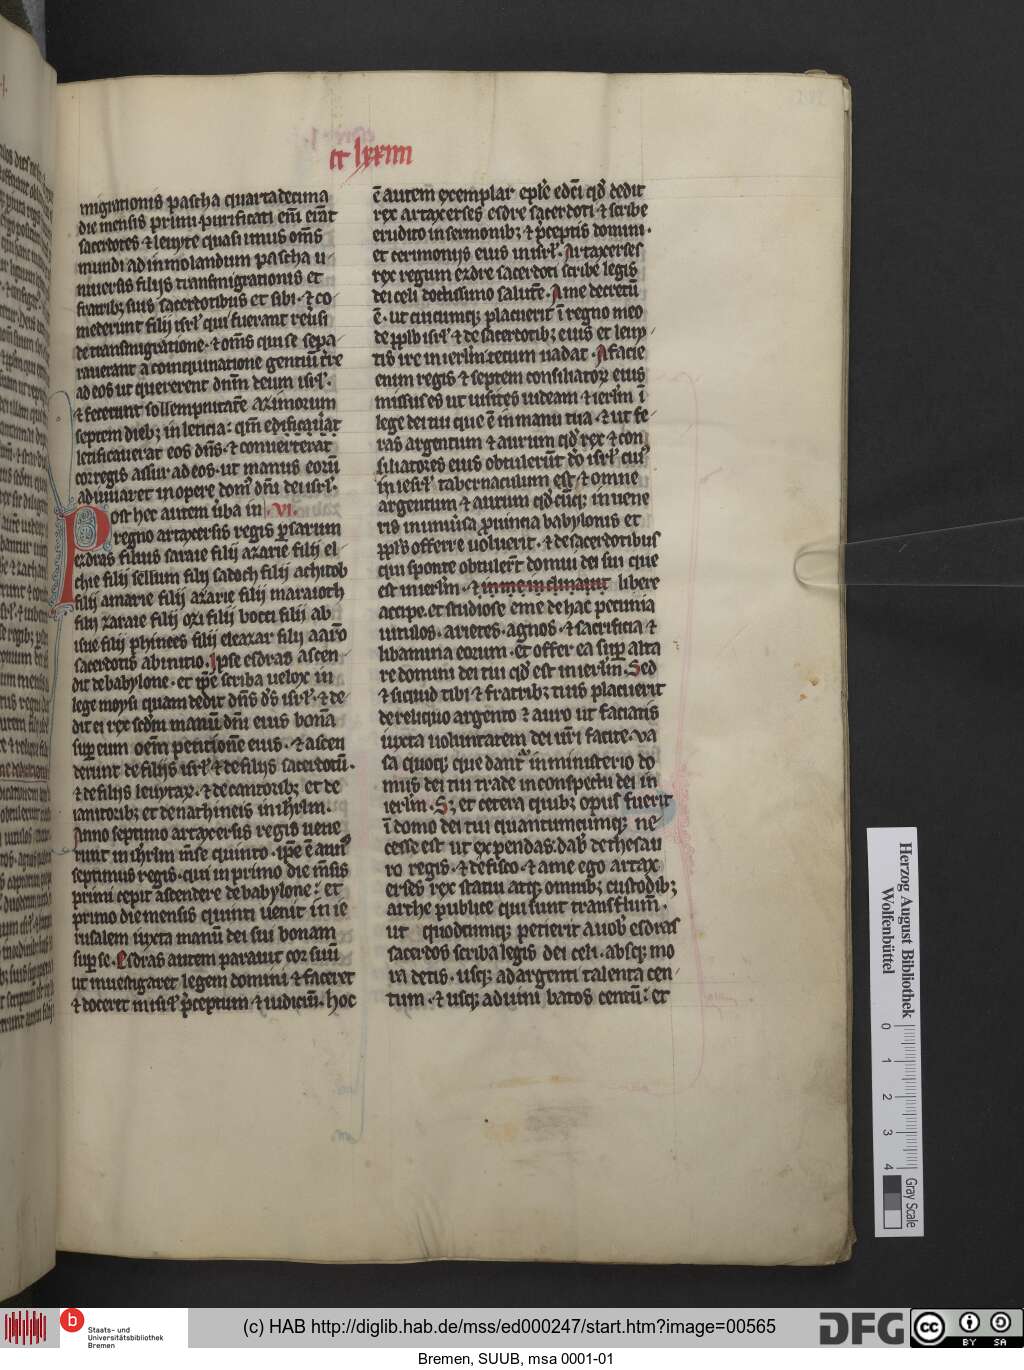 cclxxiiii
migrationis pascha quartadecima
die mensis primi. purificati eni͂ era͂t
sacerdotes ⁊ leuyte quasi unus om͂s
mundi ad inmolandum pascha u-
niuersis filijs transmigrationis et
fratribꝫ suis sacerdotibus et sibi. ⁊ co-
mederunt filij isrl̄ qui fuerant reu͂si
de transmigratione. ⁊ om͂s qui se sepa-
rauerant a coinquinatione gentiu͂ t͂re
ad eos ut quererent dn͂m deum isrl̄.
⁊ fecerunt sollempnitate͂ azimorum
septem diebꝫ in leticia: qm͂
letificauerat eos dn͂s. ⁊ conuerterat
cor regis assur ad eos. ut manus eoru͂
adiuuaret in opere dom᷒ dn͂i dei isrl̄.
Post hec autem u͂ba in .VI.
regno artaxersis regis ꝑsarum
ezdras filius saraie filij azarie filij el-
chie filij sellium filij sadoch filij achitob
filij amarie filij azarie filij maraioth
filij zaraie filij ozi filij bocci filij ab
isue filij phinees filij eleazar filij aaro͂
sacerdotis abinitio. Ipse esdras ascen-
dit de babylone. et ip͂e scriba uelox in
lege moysi quam dedit dn͂s d͂s isrl̄. ⁊ de-
dit ei rex scd͂m manu͂ dn͂i eius bona͂
suꝑ eum oem͂ petitione͂ eius. ⁊ ascen
derunt de filijs isrl̄ ⁊ de filijs sacerdotu͂.
⁊ de filijs leuytaꝝ. ⁊ de cantoribꝫ et de
ianitoribꝫ et de nathineis in ihrlm͂.
Anno septimo artaxersis regis uene
runt in ihrlm͂ m͂se quinto. ip͂e e͂ ann᷒
septimus regis. qui in primo die m͂sis
primi cepit ascendere de babylone: et
primo die mensis quinti uenit in ie
rusalem iuxta manu͂ dei sui bonam
suꝑ se. Esdras autem parauit cor suu͂
ut inuestigaret legem domini ⁊ faceret
⁊ doceret in isrl̄ p͂ceptum ⁊ iudiciu͂. hoc
e͂ autem exemplar epl͂e edc͂i qd͂ dedit
rex artaxerses esdre sacerdoti ⁊ scribe
erudito in sermonibꝫ ⁊ p͂ceptis domini.
et cerimonijs eius in isrl̄. Artaxerses
rex regum ezdre sacerdoti scribe legis
dei celi doctissimo salute͂. Ame decretu͂
e͂. ut cuicumqꝫ placuerit i͂ regno meo
de ppl͂o isrl̄ ⁊ de sacerdotibꝫ eius et leuy-
tis ire in ierlm͂. tecum uadat. A facie
enim regis ⁊ septem consiliatoꝝ eius
missus es ut uisites iudeam ⁊ ierlm͂ i͂
lege dei tui que e͂ in manu tua. ⁊ ut fe-
ras argentum ⁊ aurum qd͂ rex ⁊ con
siliatores eius obtuleru͂t d͂o isrl̄ cui᷒
in ierl̄ tabernaculum est ⁊ omne
argentum ⁊ aurum qd͂cu͂qꝫ inuene
ris in uniu͂sa ꝓuincia babylonis et
ppl͂s offerre uoluerit. ⁊ de sacerdotibus
qui sponte obtuler͂t domui dei sui que
est in ierlm͂. ⁊ libere
accipe. et studiose eme de hac pecunia
uitulos. arietes. agnos. ⁊ sacrificia ⁊
libamina eorum. et offer ea suꝑ alta
re domini dei tui qd͂ est in ierlm͂. Sed
⁊ siquid tibi ⁊ fratribꝫ tuis placuerit
de reliquo argento ⁊ auro ut faciatis
iuxta uoluntatem dei ur͂i facite. va
sa quoqꝫ que dant᷑ in ministerio do
mus dei tui trade in conspectu dei in
ierlm͂. Sꝫ et cetera quibꝫ opus fuerit
i͂ domo dei tui quantumcumqꝫ ne
cesse est ut expendas. dab᷑ de thesau
ro regis. ⁊ de fisco. ⁊ ame ego artax
erses rex statui atqꝫ omnibꝫ custodibꝫ
arche publice qui sunt
ut quodcumqꝫ petierit a uob᷒ esdras
sacerdos scriba legis dei celi. absqꝫ mo
ra detis. usqꝫ ad argenti talenta cen-
tum. ⁊ usqꝫ ad uini batos centu͂: et
Herzog August Bibliothek
Wolfenbüttel
0 1 2 3 4
Gray Scale
b Staats- und
Universitätsbibliothek
Bremen
(c) HAB http://diglib.hab.de/mss/ed000247/start.htm?image=00565
DFG
cc BY SA
Bremen, SUUB, msa 0001-01